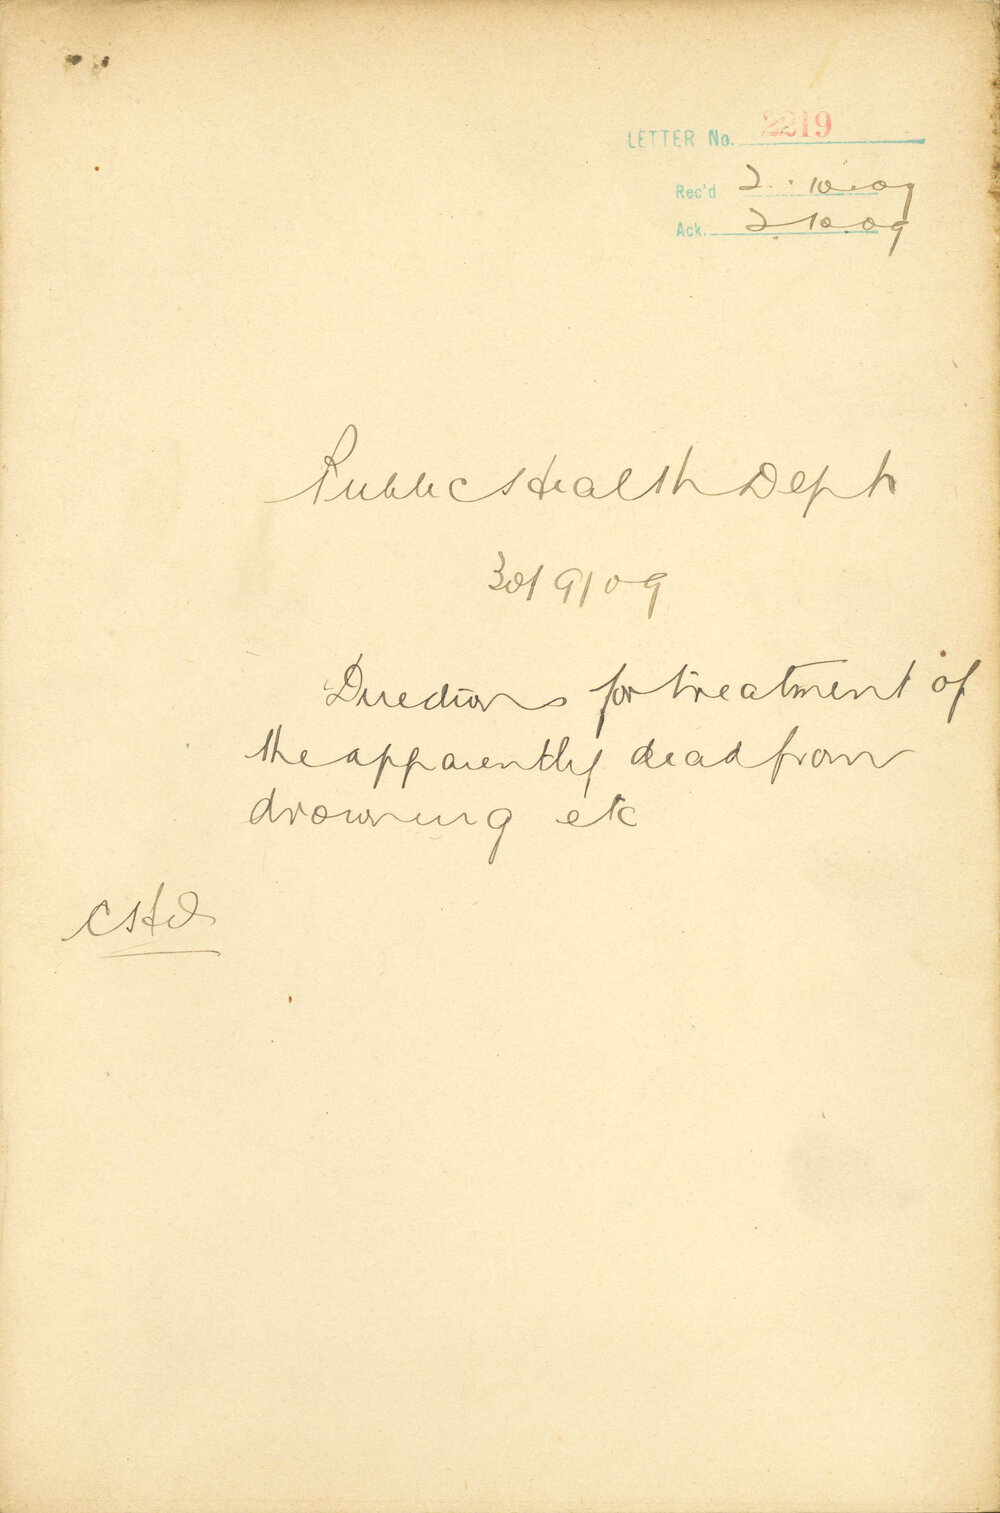 LETTER No. 2219
Rec'd 2.10.09
Ack. 2.10.09
Public Health Dept
30/9/09
Directions for treatment of
the apparently dead from
drowning etc